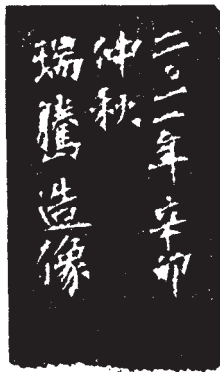 二〇一一年辛卯
仲秋
瑞騰造像